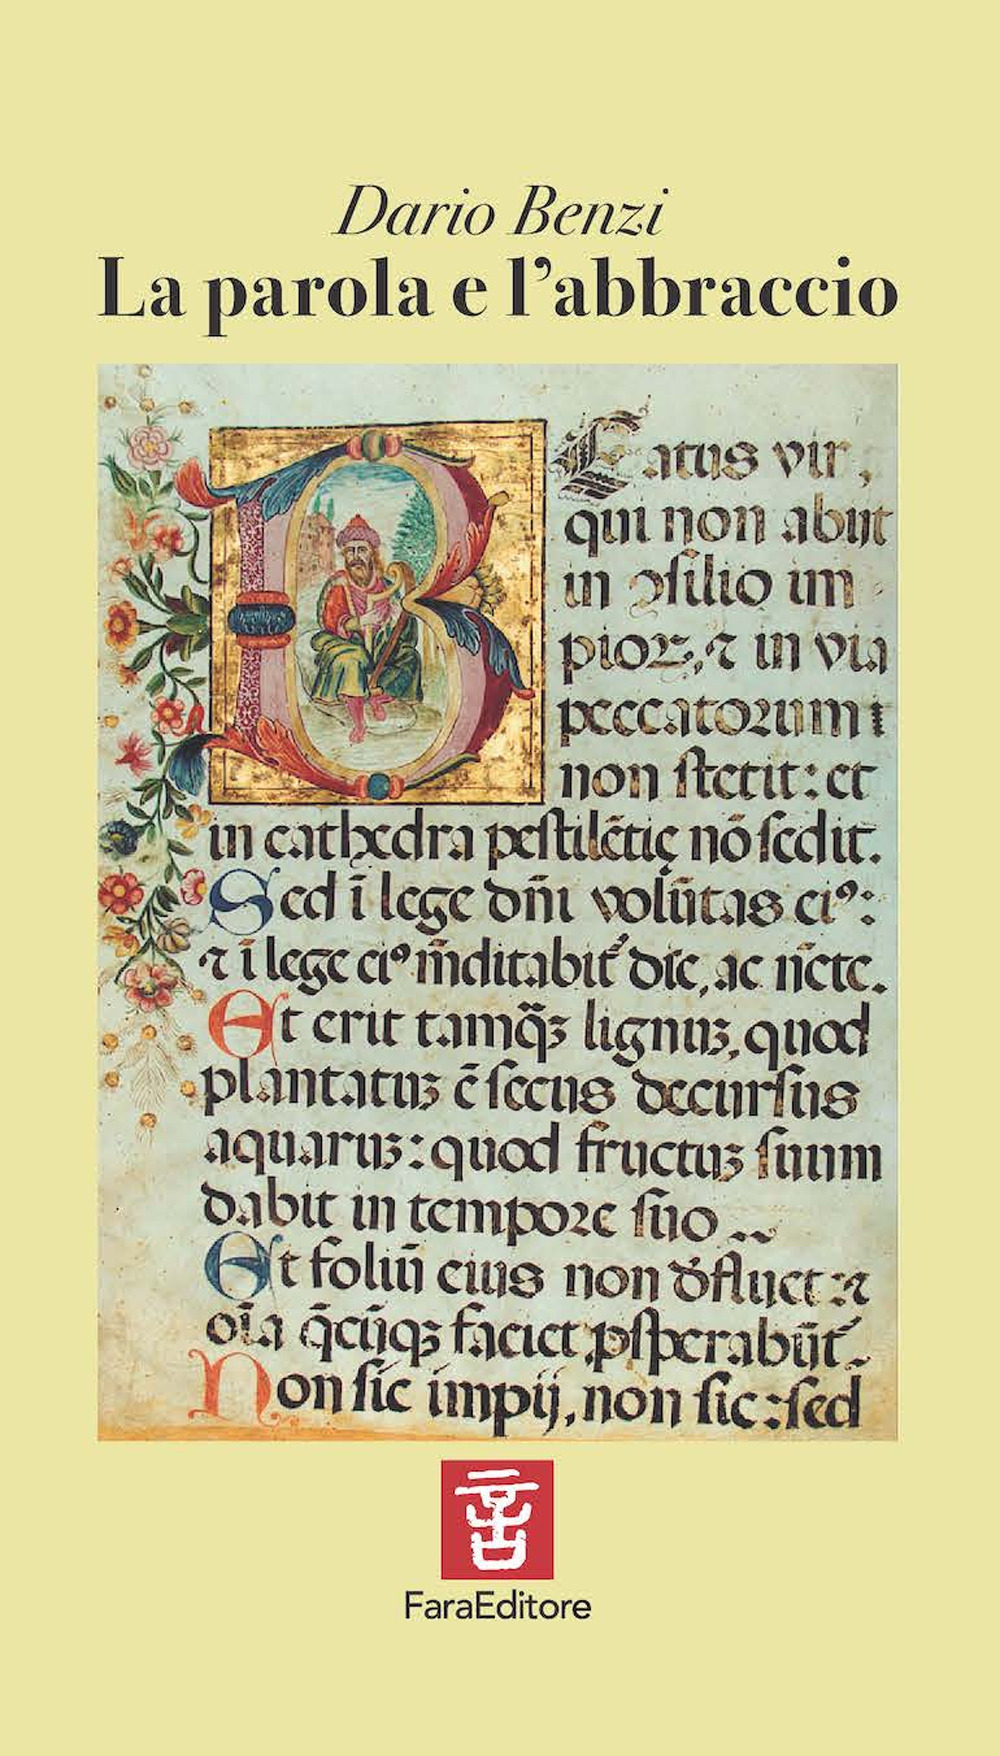 Dario Benzi
La parola e l’abbraccio
Beatus vir,
qui non abijt
in ꝯsilio im
pioꝝ, ⁊ in via
peccatorum
non ſtetit: et
in cathedra peſtilẽtię nõ ſedit.
Sed ĩ lege dñi volũtas eiꝰ:
⁊ ĩ lege eiꝰ m̃ditabit᷑ die, ac ñcte.
Et erit tamq̃ꝫ lignuꝫ, quod
plantatuꝫ ẽ ſecus decurſus
aquaruꝫ: quod fructuꝫ ſuum
dabit in tempore ſuo
Et foliũ eius non dꝰfluet: ⁊
oĩa q̃cũqꝫ faciet ꝓſperabũt᷑
Non ſic impij, non ſic: ſed
言
FaraEditore